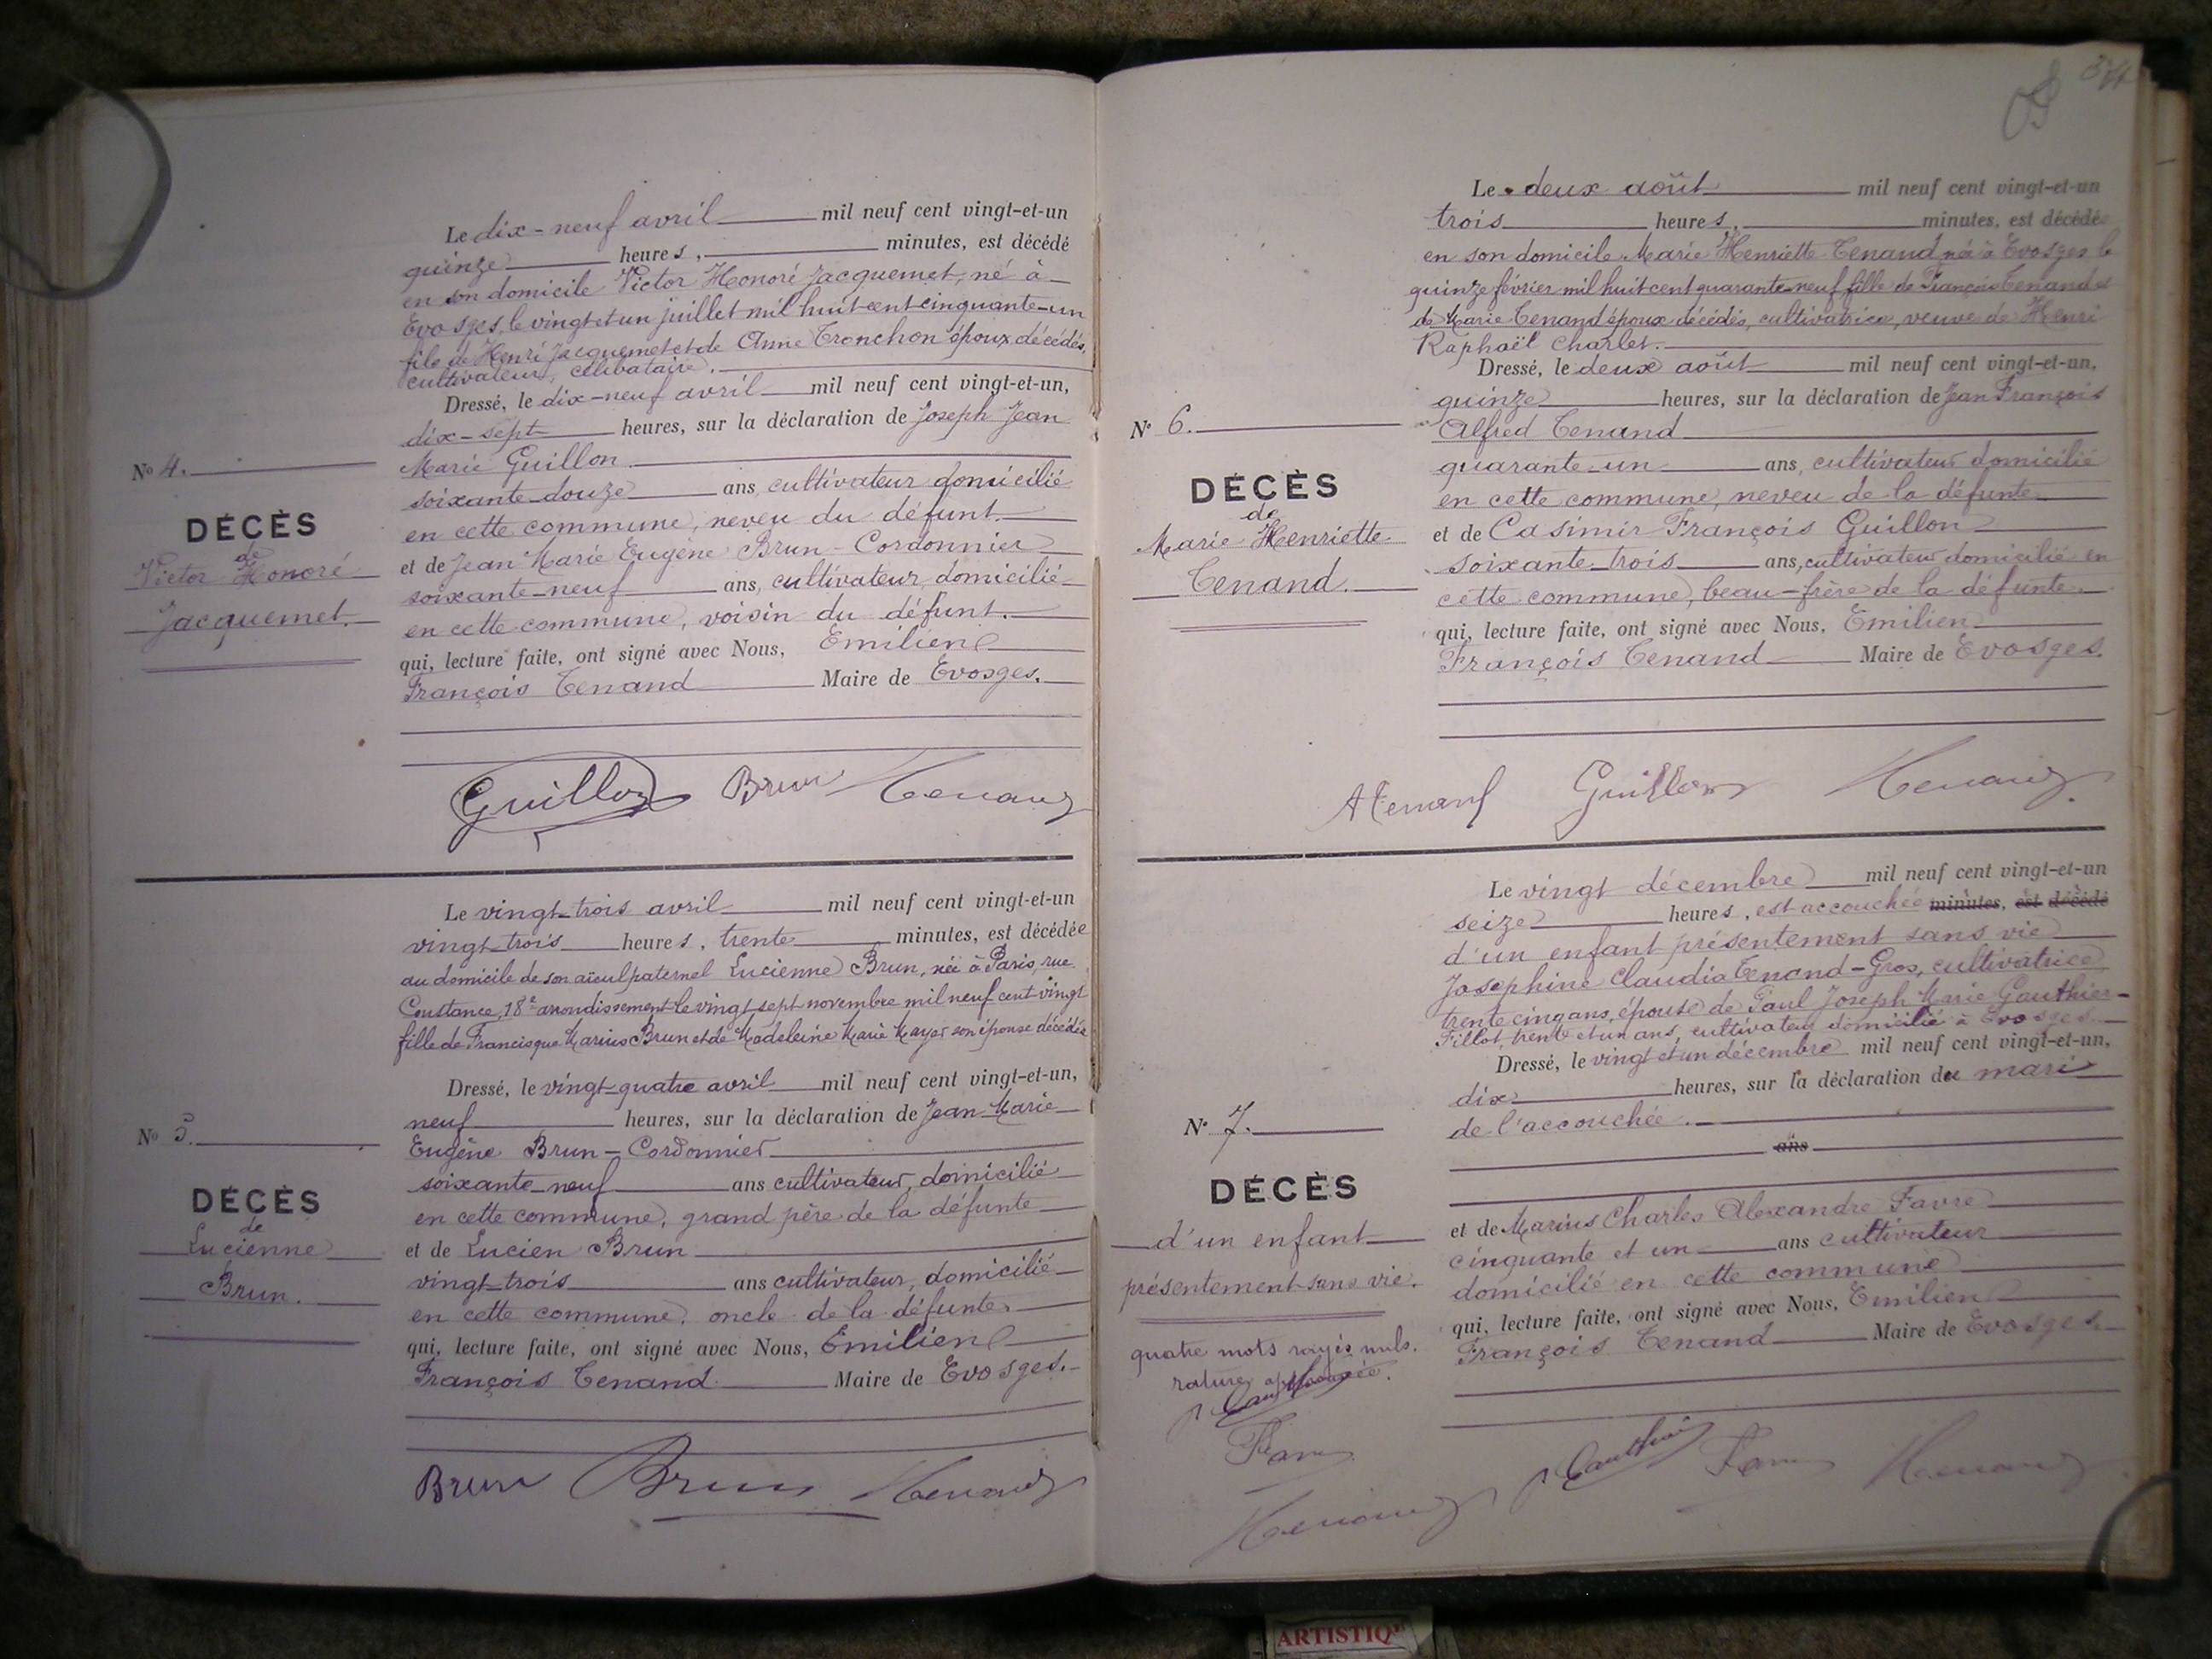 Le dix-neuf avril mil neuf cent vingt-et-un
quinze heures, minutes, est décédé
en son domicile Victor Honoré Jacquemet, né à
Evosges, le vingt et un juillet mil huit cent cinquante-un
fils de Henri Jacquemet et de Anne Tronchon époux décédés,
cultivateur, célibataire.
Dressé, le dix-neuf avril mil neuf cent vingt-et-un,
dix-sept heures, sur la déclaration de Joseph Jean
Marie Guillon
soixante-douze ans, cultivateur domicilié
en cette commune, neveu du défunt.
et de Jean Marie Eugène Brun-Cordonnier
soixante-neuf ans, cultivateur domicilié
en cette commune, voisin du défunt.
qui, lecture faite, ont signé avec Nous, Emilien
François Tenand Maire de Evosges.
No 4.
DÉCÈS
de
Victor Honoré
Jacquemet.
Guillon Brun Tenand
Le vingt-trois avril mil neuf cent vingt-et-un
vingt-trois heures, trente minutes, est décédée
au domicile de son aïeul paternel Lucienne Brun, née à Paris, rue
Constance, 18e arrondissement le vingt sept novembre mil neuf cent vingt
fille de Francisque Marius Brun et de Madeleine Marie Mayer son épouse décédée
Dressé, le vingt-quatre avril mil neuf cent vingt-et-un,
neuf heures, sur la déclaration de Jean Marie
Eugène Brun-Cordonnier
soixante-neuf ans cultivateur, domicilié
en cette commune, grand père de la défunte
et de Lucien Brun
vingt-trois ans cultivateur, domicilié
en cette commune, oncle de la défunte.
qui, lecture faite, ont signé avec Nous, Emilien
François Tenand Maire de Evosges.
No 5.
DÉCÈS
de
Lucienne
Brun.
Brun Brun Tenand
Le deux août mil neuf cent vingt-et-un
trois heures, minutes, est décédée
en son domicile Marie Henriette Tenand née à Evosges le
quinze février mil huit cent quarante-neuf fille de François Tenand et
de Marie Tenand époux décédés, cultivatrice, veuve de Henri
Raphaël Charlet.
Dressé, le deux août mil neuf cent vingt-et-un,
quinze heures, sur la déclaration de Jean François
Alfred Tenand
quarante-un ans, cultivateur domicilié
en cette commune, neveu de la défunte
et de Casimir François Guillon
soixante-trois ans, cultivateur domicilié en
cette commune, beau-frère de la défunte.
qui, lecture faite, ont signé avec Nous, Emilien
François Tenand Maire de Evosges.
N° 6.
DÉCÈS
de
Marie Henriette
Tenand.
A Tenand Guillon Tenand
Le vingt décembre mil neuf cent vingt-et-un
seize heures, est accouchée minutes, est décédé
d'un enfant présentement sans vie
Josephine Claudia Tenand-Gros, cultivatrice
trente cinq ans, épouse de Paul Joseph Marie Gauthier-
Fillot, trente et un ans, cultivateur domicilié à Evosges
Dressé, le vingt et un décembre mil neuf cent vingt-et-un,
dix heures, sur la déclaration du mari
de l'accouchée.
ans
et de Marius Charles Alexandre Favre
cinquante et un ans cultivateur
domicilié en cette commune
qui, lecture faite, ont signé avec Nous, Emilien
François Tenand Maire de Evosges.
N° 7.
DÉCÈS
d'un enfant
présentement sans vie.
quatre mots rayés nuls.
rature approuvée.
Gauthier
Favre
Tenand
Gauthier Favre Tenand
ARTISTIQ